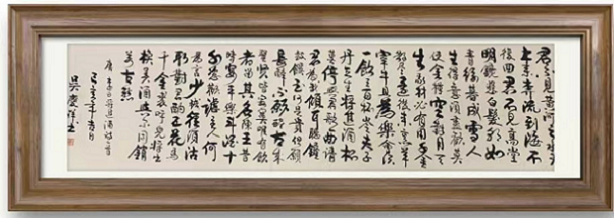 君不見黃河之水天
上來奔流到海不
復回君不見高堂
明鏡悲白髮朝如
青絲暮成雪人
生得意須盡歡莫
使金樽空對月天
生我材必有用千金
散盡還復來烹羊
宰牛且為樂會須
一飲三百杯岑夫子
丹丘生將進酒杯
莫停與君歌一曲請
君為我傾耳聽鐘
鼓饌玉何足貴但願
長醉不願醒古來
聖賢皆寂寞惟有飲
者留其名陳王昔
時宴平樂斗酒十
千恣歡謔主人何
為言少錢徑須沽
取對君酌五花馬
千金裘呼兒將出
換美酒與爾同銷
萬古愁
唐李白將進酒詩一首
己亥年
吳慶祥書